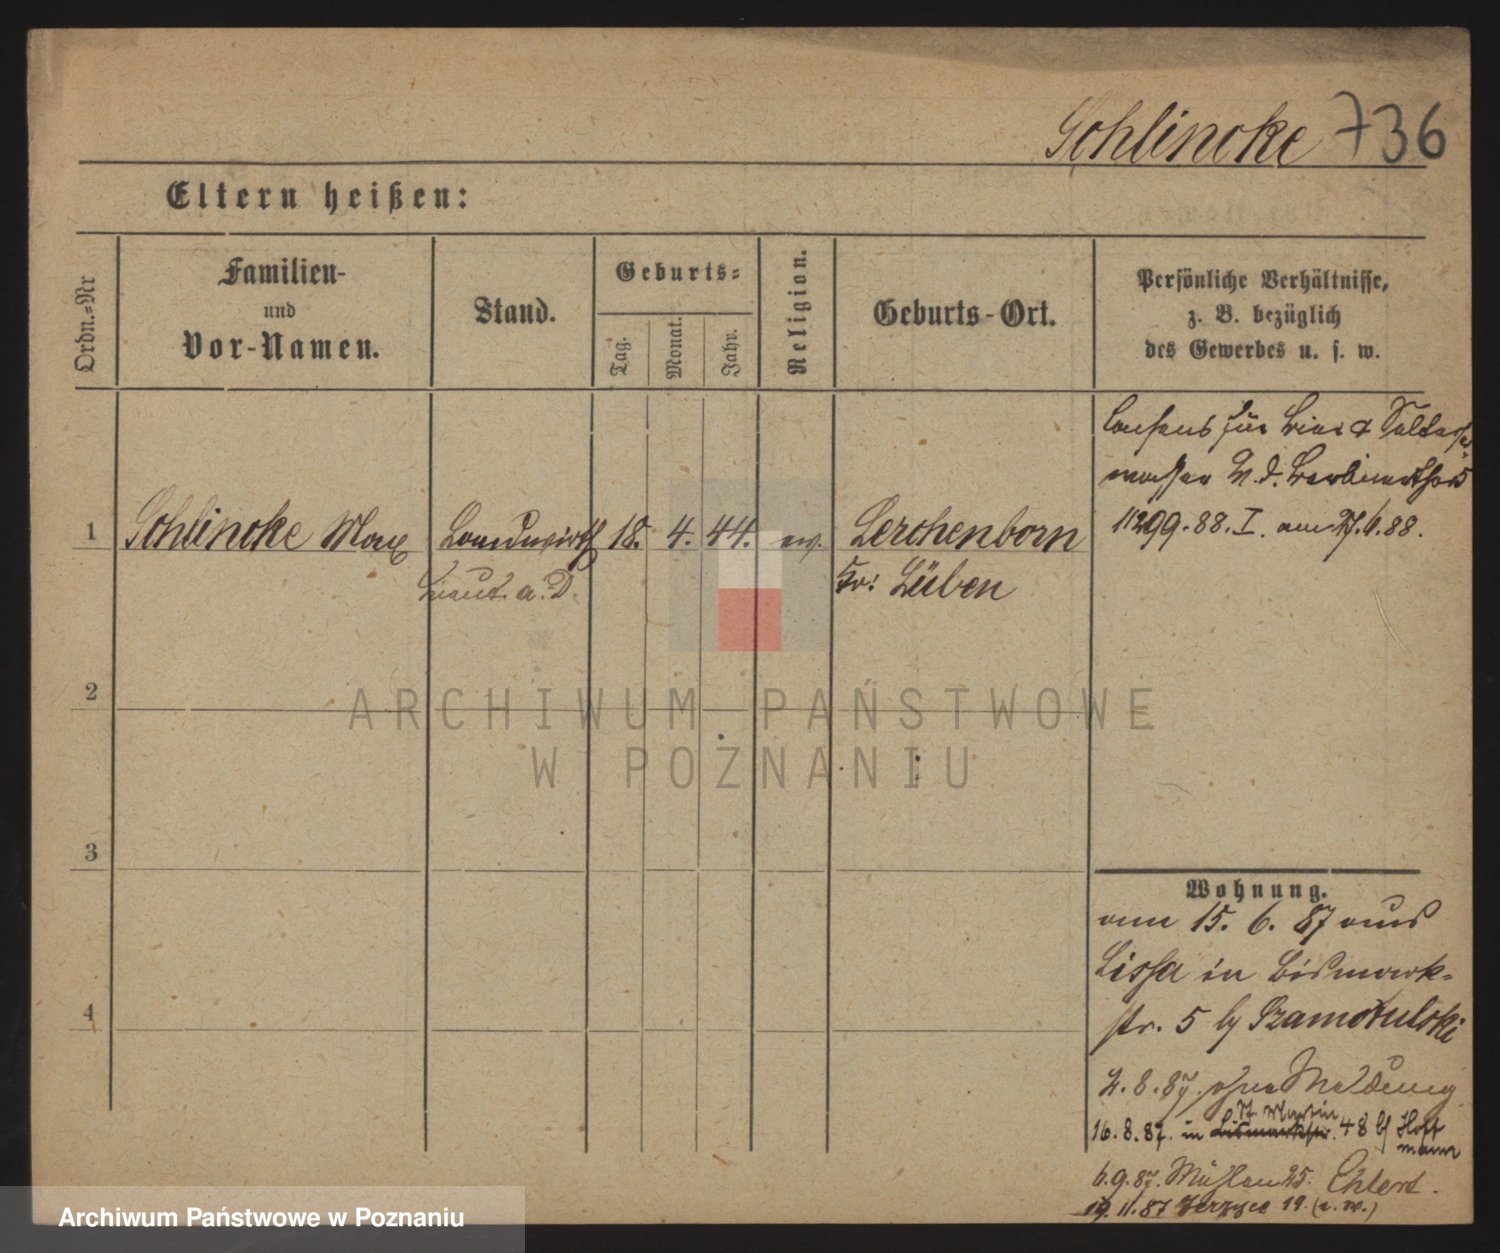 Schlincke 736
Eltern heißen:
Ordn.=Nr
Familien-
und
Vor-Namen.
Stand.
Geburts=
Tag.
Monat.
Jahr.
Religion.
Geburts-Ort.
Persönliche Verhältnisse,
z. B. bezüglich
des Gewerbes u. s. w.
Consens für Bier & Selter
wasser
11299.88.I. am 27.6.88.
1 Schlincke Max Landwirth 18. 4. 44. ev. Lerchenborn
Lieut. a. D. Kr: Lüben
2
3
4
ARCHIWUM PAŃSTWOWE
W POZNANIU
Wohnung.
am 15. 6. 87 aus
Lissa in Bismark-
str. 5 by Szamotulski
2.8.87. ohne Meldung
St Martin
16.8.87. in Bismarkstr. 48 b/ Hoff
mann
6.9.87. Mühlen 25. Ehlert.
19.11.87 Jerzyce 19. (a. W.)
Archiwum Państwowe w Poznaniu